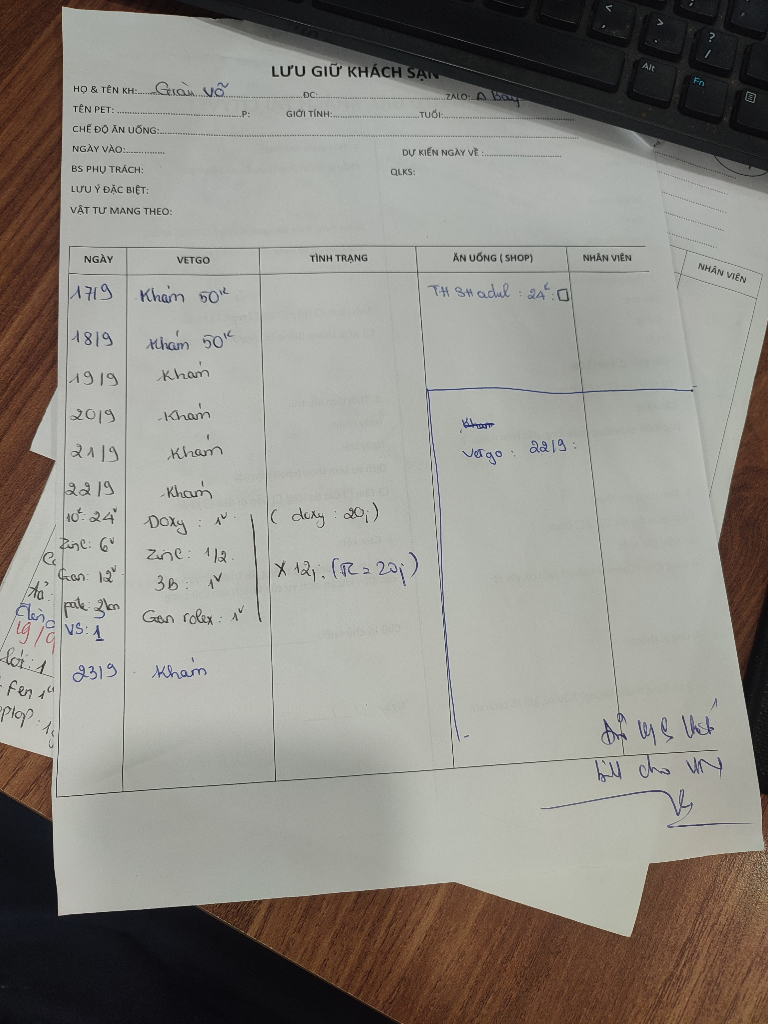 LƯU GIỮ KHÁCH SẠN
HỌ & TÊN KH: Giàu Võ ĐC: ZALO: A Bay
TÊN PET: P: GIỚI TÍNH: TUỔI:
CHẾ ĐỘ ĂN UỐNG:
NGÀY VÀO: DỰ KIẾN NGÀY VỀ :
BS PHỤ TRÁCH: QLKS:
LƯU Ý ĐẶC BIỆT:
VẬT TƯ MANG THEO:
NGÀY VETGO TÌNH TRẠNG ĂN UỐNG ( SHOP) NHÂN VIÊN
17/9 Khám 50k TH SH adul : 24
18/9 Khám 50k
19/9 Khám
20/9 Khám
21/9 Khám Vetgo : 22/9 :
22/9 Khám
24v Doxy : 1v ( doxy : 20j )
Zinc: 6v Zinc : 1/2
Gan: 12v 3B : 1v X 12j. ( = 20j )
pate: 3lon Gan rolex : 1v
VS: 1
23/9 Khám
bill cho
NHÂN VIÊN
19/9
: 1
Fen 1
Alt
Fn